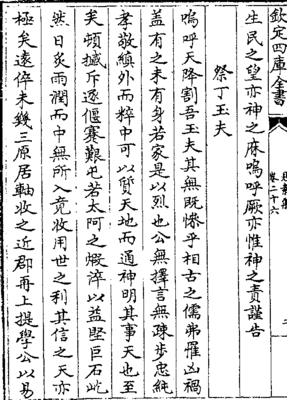 欽定四庫全書
卷二十六
生民之望亦神之庥嗚呼厥亦惟神之責謹告
祭丁玉夫
嗚呼天降割吾玉夫其無既慘乎相古之儒弗罹凶禍
蓋有之未有身若家是以烈也公無擇言無疎步忠純
孝敬縝外而粹中可以質天地而通神明其事天也至
矣頓摵斥逐偃蹇艱屯若太阿之煅淬以益堅巨石屹
然日炙雨潤而中無所入竟收用世之利其信之天亦
極矣遠倅未幾三原居軸收之近郡再上提學公以易